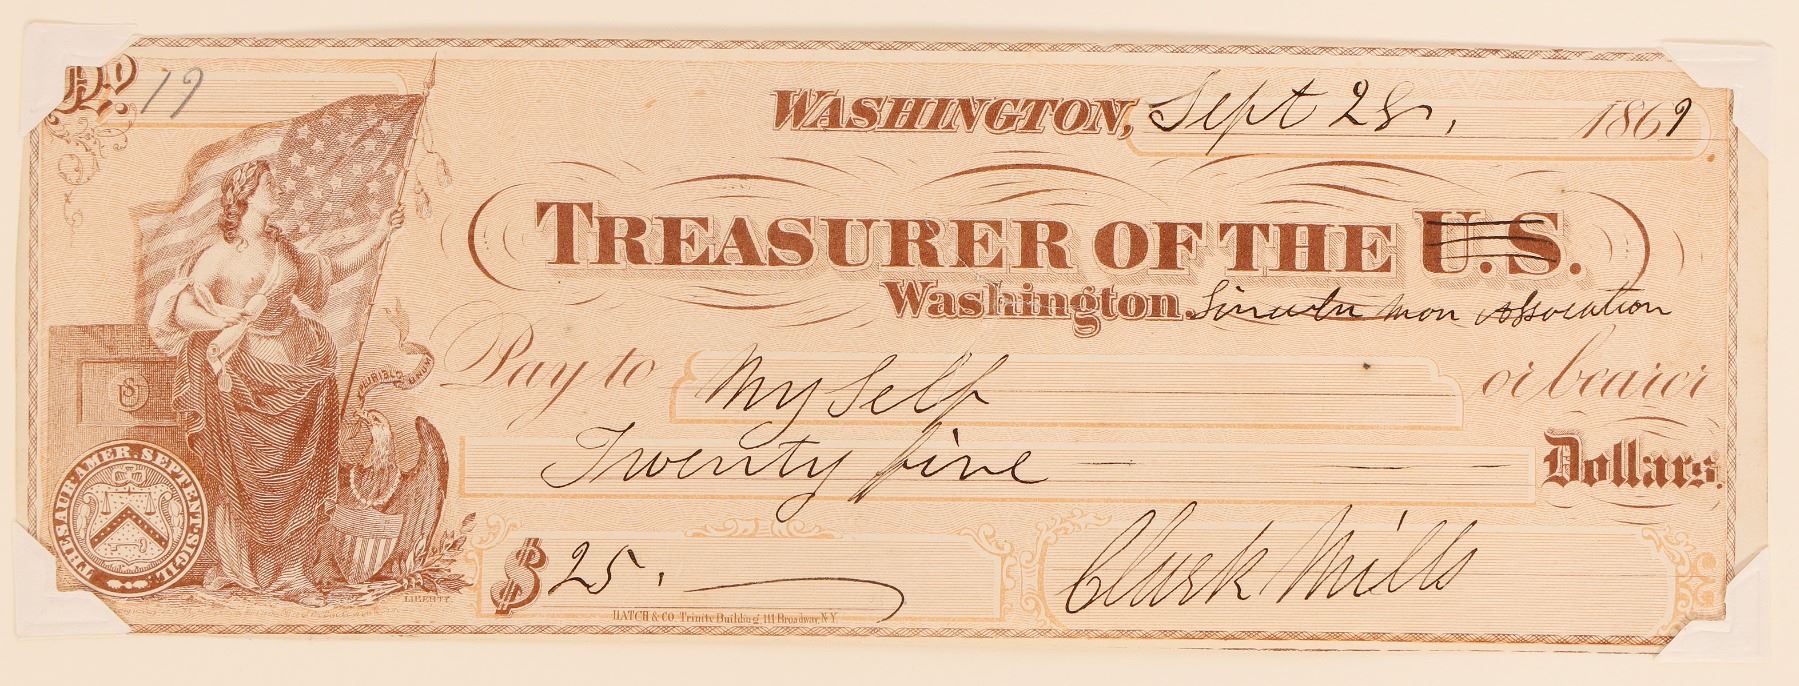 No. 19
WASHINGTON, Sept 28, 1869
TREASURER OF THE U.S.
Washington. Lincoln Mon Association
Pay to My Self or bearer
Twenty five Dollars.
$ 25.
Clark Mills
THESAUR. AMER. SEPTENT. SIGIL.
E PLURIBUS UNUM
US
LIBERTY
HATCH & CO. Trinity Building, 111 Broadway, N.Y.